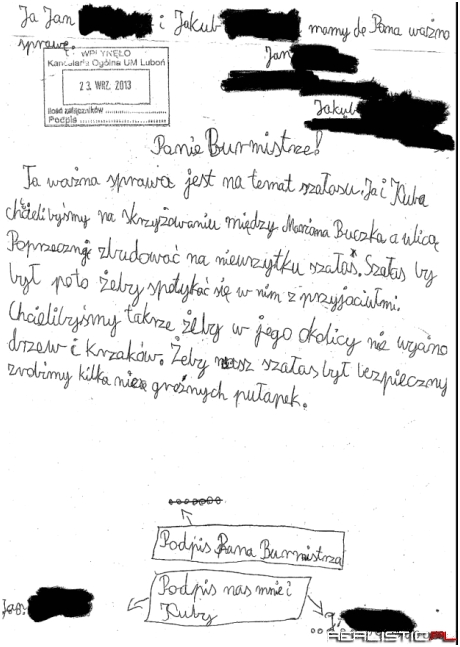 Ja Jan i Jakub mamy do Pana ważno
sprawę.
WPŁYNĘŁO
Kancelaria Ogólna UM Luboń
23 WRZ. 2013
Ilość załączników
Podpis
Jan
Jakub
Panie Burmistrze!
Ta ważna sprawa jest na temat szałasu. Ja i Kuba
chcielibyśmy na skrzyżowaniu między Mariana Buczka a ulicą
Poprzeczną zbudować na nieurzytku szałas. Szałas by
był poto żeby spotykać się w nim z przyjaciułmi.
Chcielibyśmy takrze żeby w jego okolicy nie wycino
drzew i krzaków. Żeby nasz szałas był bezpieczny
zrobimy kilka nie groźnych pułapek.
Podpis Pana Burmistrza
Podpis nas mnie i
Kuby
Jan
REALISTIC.PL